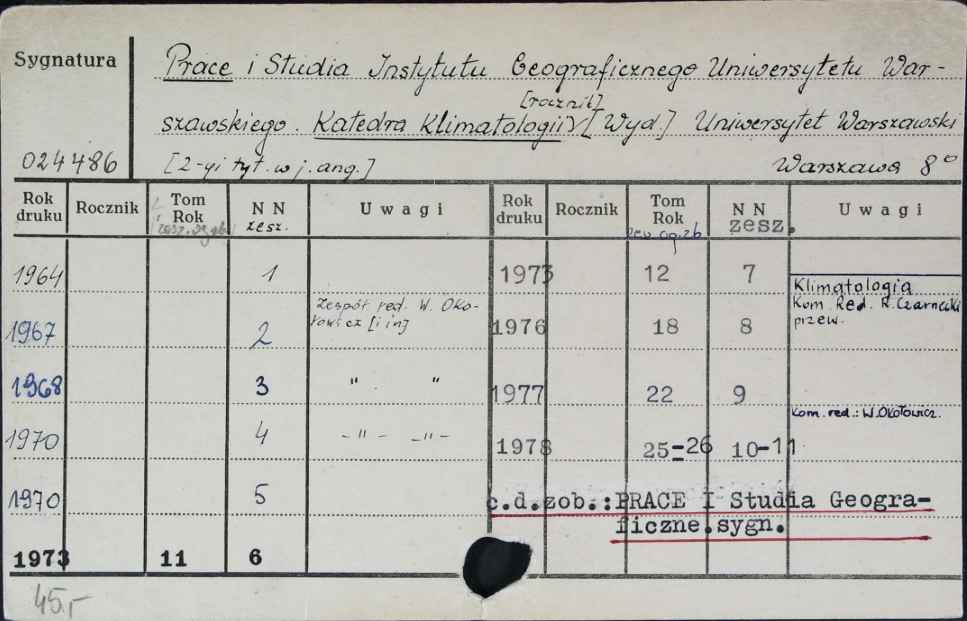 Sygnatura
Prace i Studia Instytutu Geograficznego Uniwersytetu War-
[rocznik]
szawskiego. Katedra Klimatologii [Wyd.] Uniwersytet Warszawski
024486 [2-gi tyt. w j. ang.] Warszawa 8°
Rok druku Rocznik Tom Rok NN zesz. Uwagi Rok druku Rocznik Tom Rok NN zesz. Uwagi
zesz. og. zb.
1964 1 1973 12 7 Klimatologia
1967 2 Zespół red. W. Oko-
łowicz [i in] 1976 18 8 Kom. Red. R. Czarnecki
przew.
1968 3 " " 1977 22 9
1970 4 -"- -"- 1978 25-26 10-11 Kom. red.: W. Okołowicz.
1970 5 c.d.zob.: PRACE I Studia Geogra-
ficzne.sygn.
1973 11 6
45,-